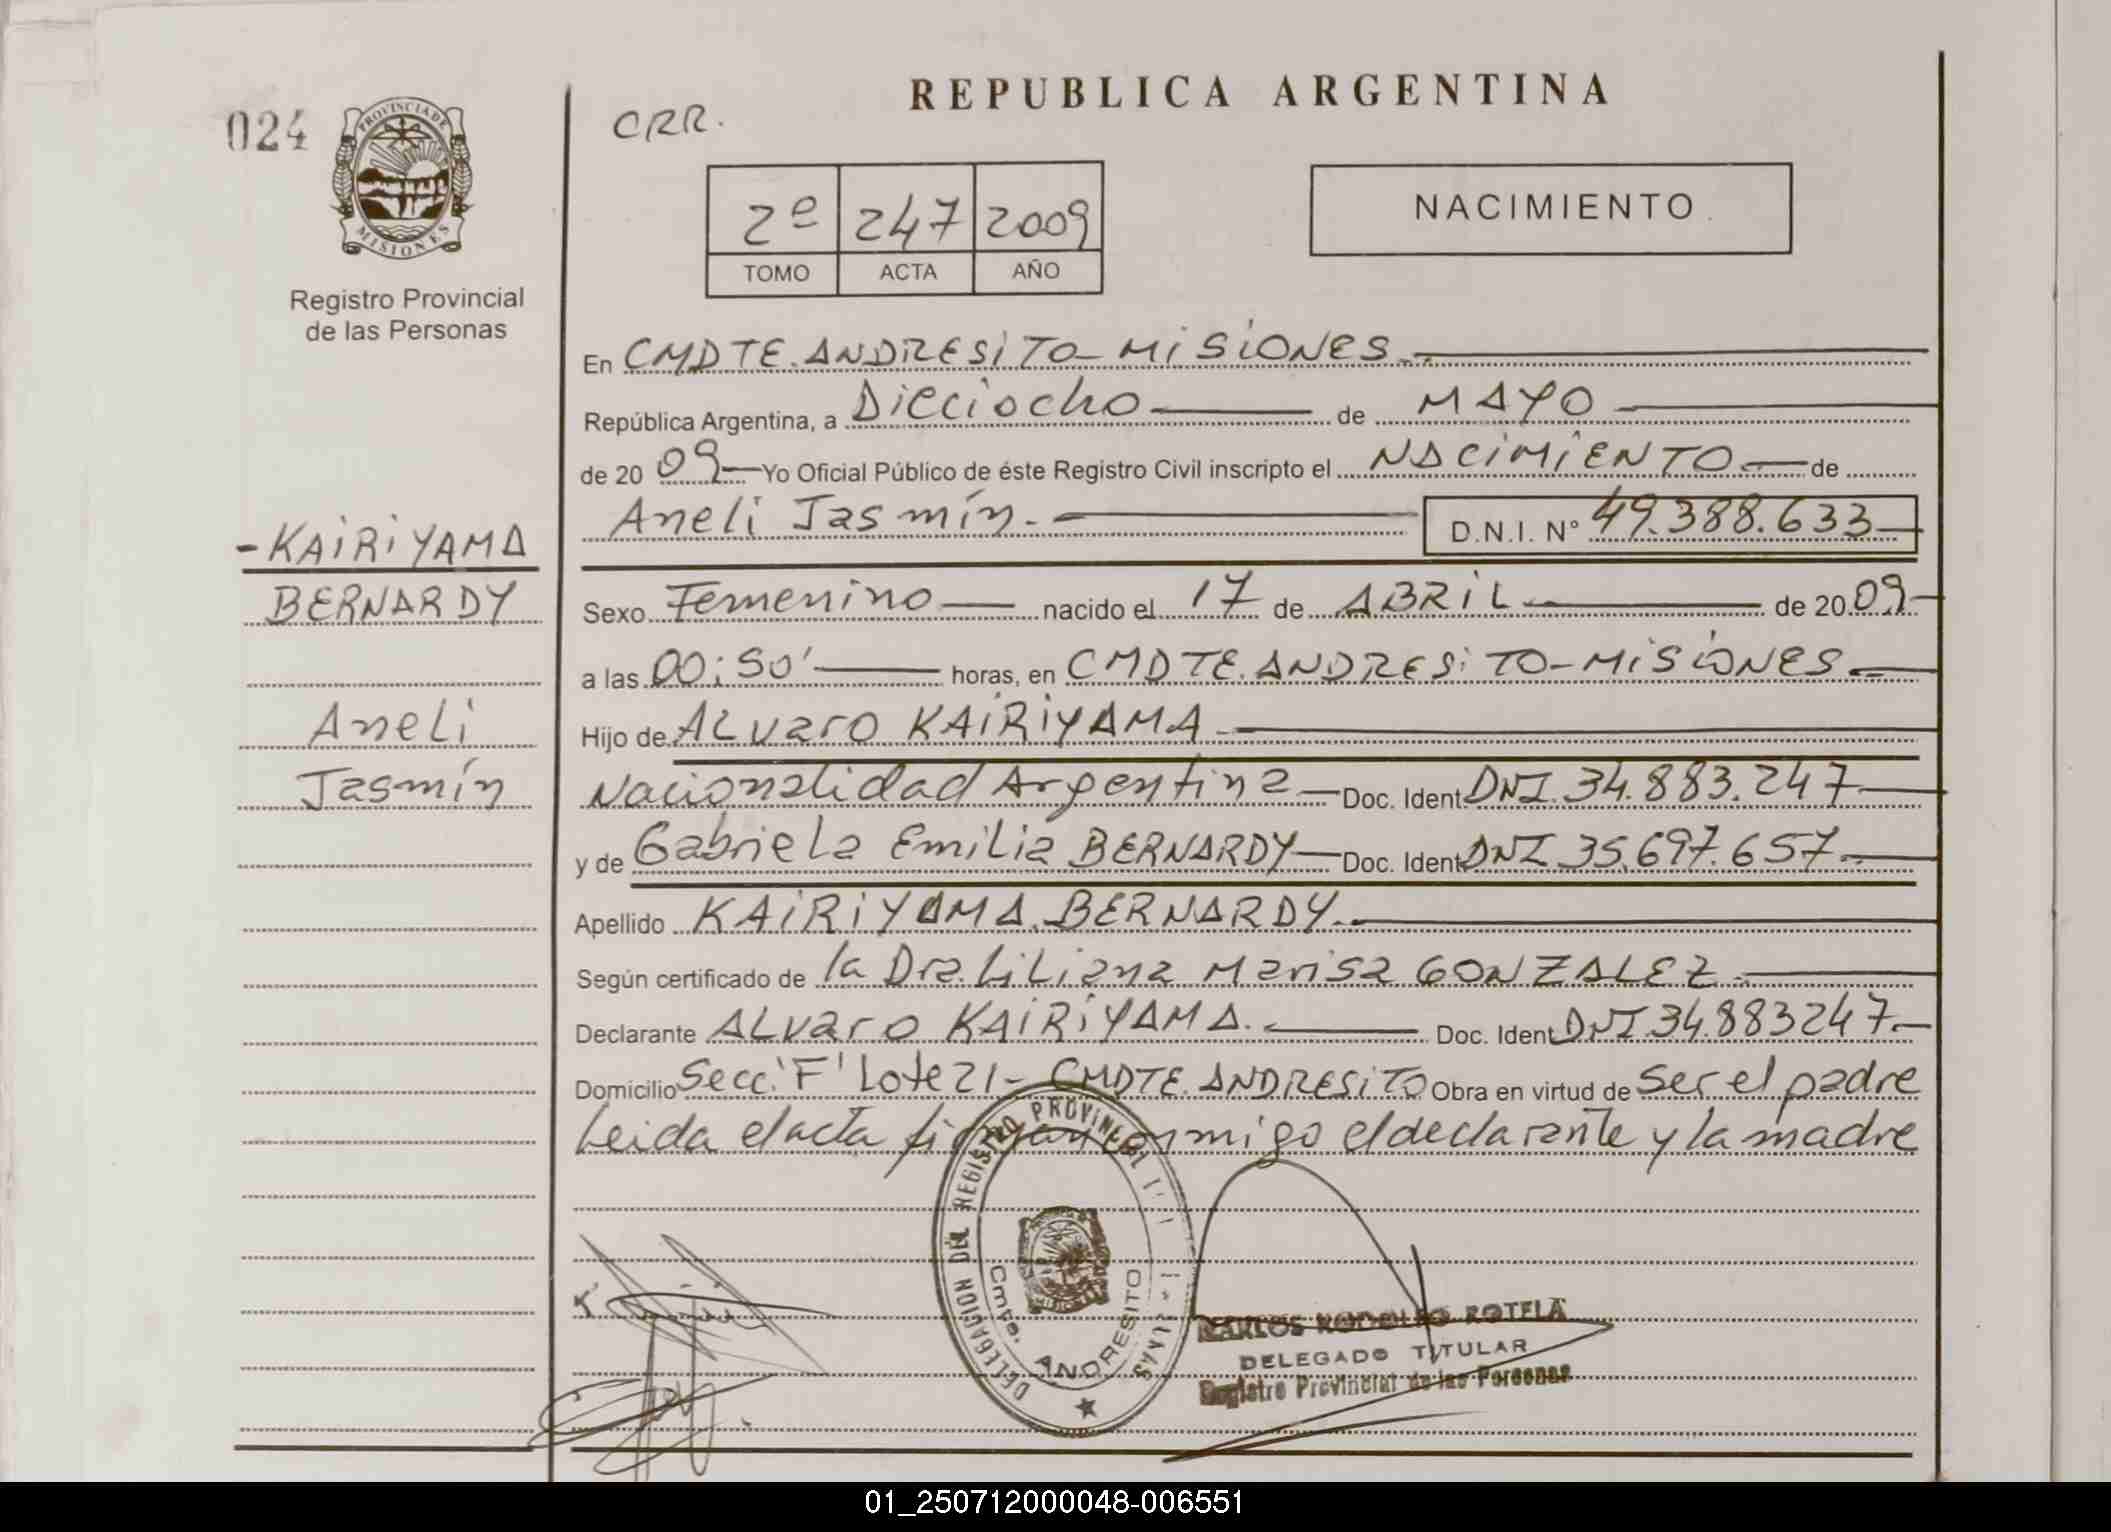 REPUBLICA ARGENTINA
024
CRR.
PROVINCIA DE
MISIONES
Registro Provincial
de las Personas
2º 247 2009
TOMO ACTA AÑO
NACIMIENTO
En CMDTE. ANDRESiTO - MiSiONES.-
República Argentina, a Dieciocho de MAYO
de 20 09 Yo Oficial Público de éste Registro Civil inscripto el NACiMiENTO de
Aneli Jasmín.- D.N.I. Nº 49.388.633
-KAiRiYAMA
BERNARDY
Aneli
Jasmín
Sexo Femenino nacido el 17 de ABRiL de 20 09
a las 00:50' horas, en CMDTE. ANDRESiTO - MiSiONES.-
Hijo de ALvaro KAiRiYAMA.-
Nacionalidad Argentina Doc. Ident. DNI. 34.883.247
y de Gabriela Emilia BERNARDY Doc. Ident. DNI 35.697.657.-
Apellido KAiRiYAMA BERNARDY.-
Según certificado de la Dra. Liliana Marisa GONZALEZ.-
Declarante ALvaro KAiRiYAMA. Doc. Ident. DNI. 34.883247.-
Domicilio Secc. 'F' Lote 21 - CMDTE. ANDRESiTO Obra en virtud de Ser el padre
Leida el acta firman conmigo el declarante y la madre
DELEGACION DEL REGISTRO PROVINCIAL
Cmte. ANDRESITO
CARLOS RODOLFO ROTELA
DELEGADO TITULAR
Registro Provincial de las Personas
01_250712000048-006551